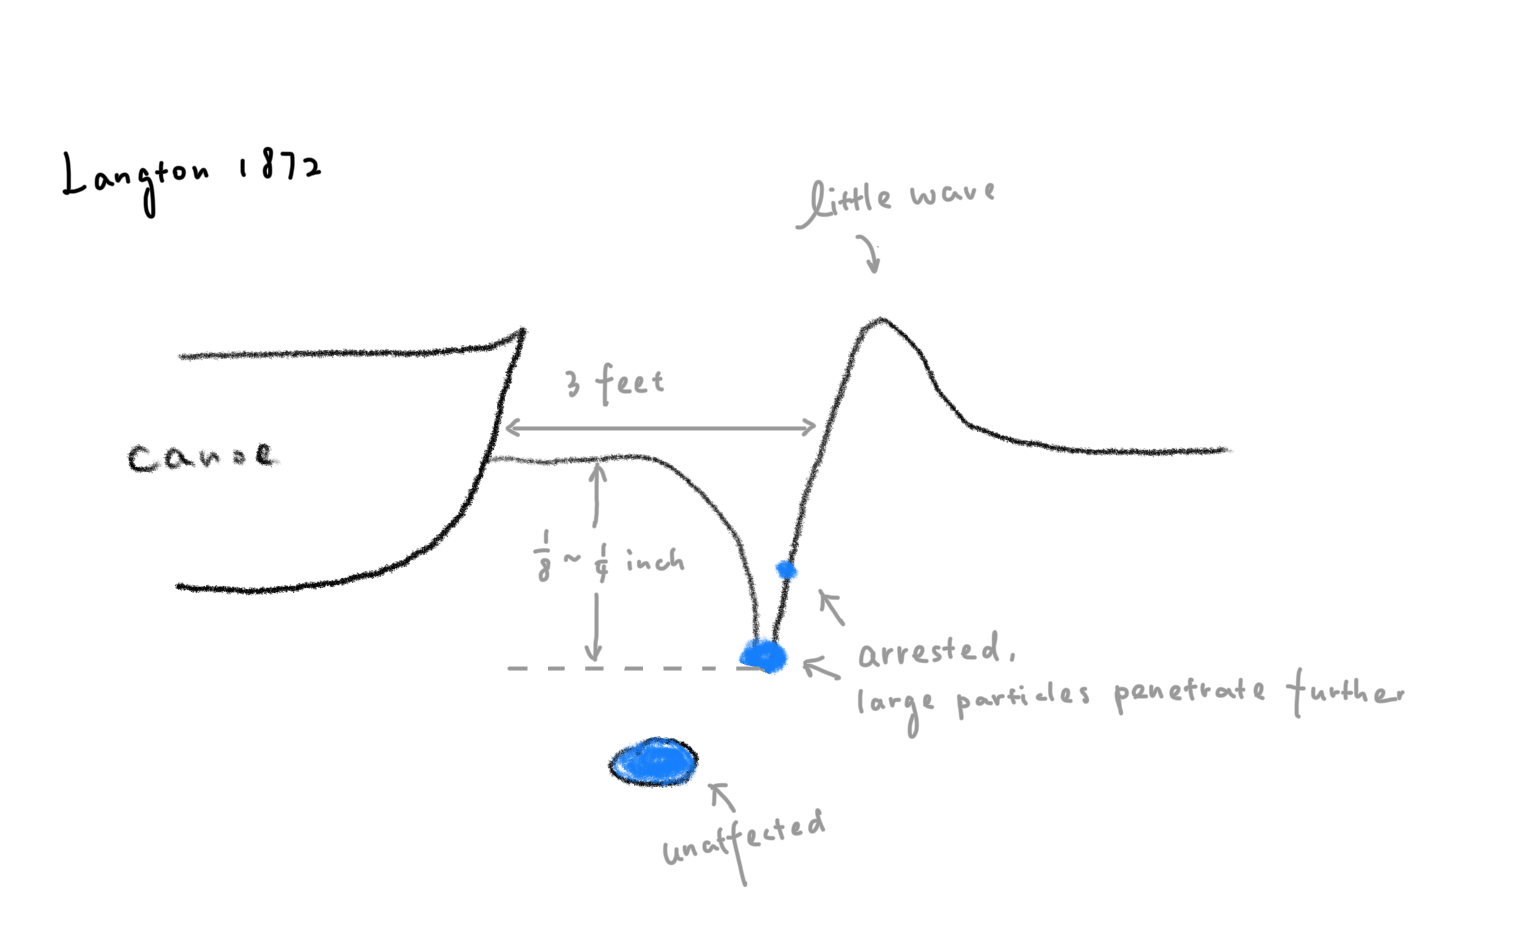 Langton 1872
little wave
3 feet
canoe
1/8 ~ 1/4 inch
arrested,
large particles penetrate further
unaffected